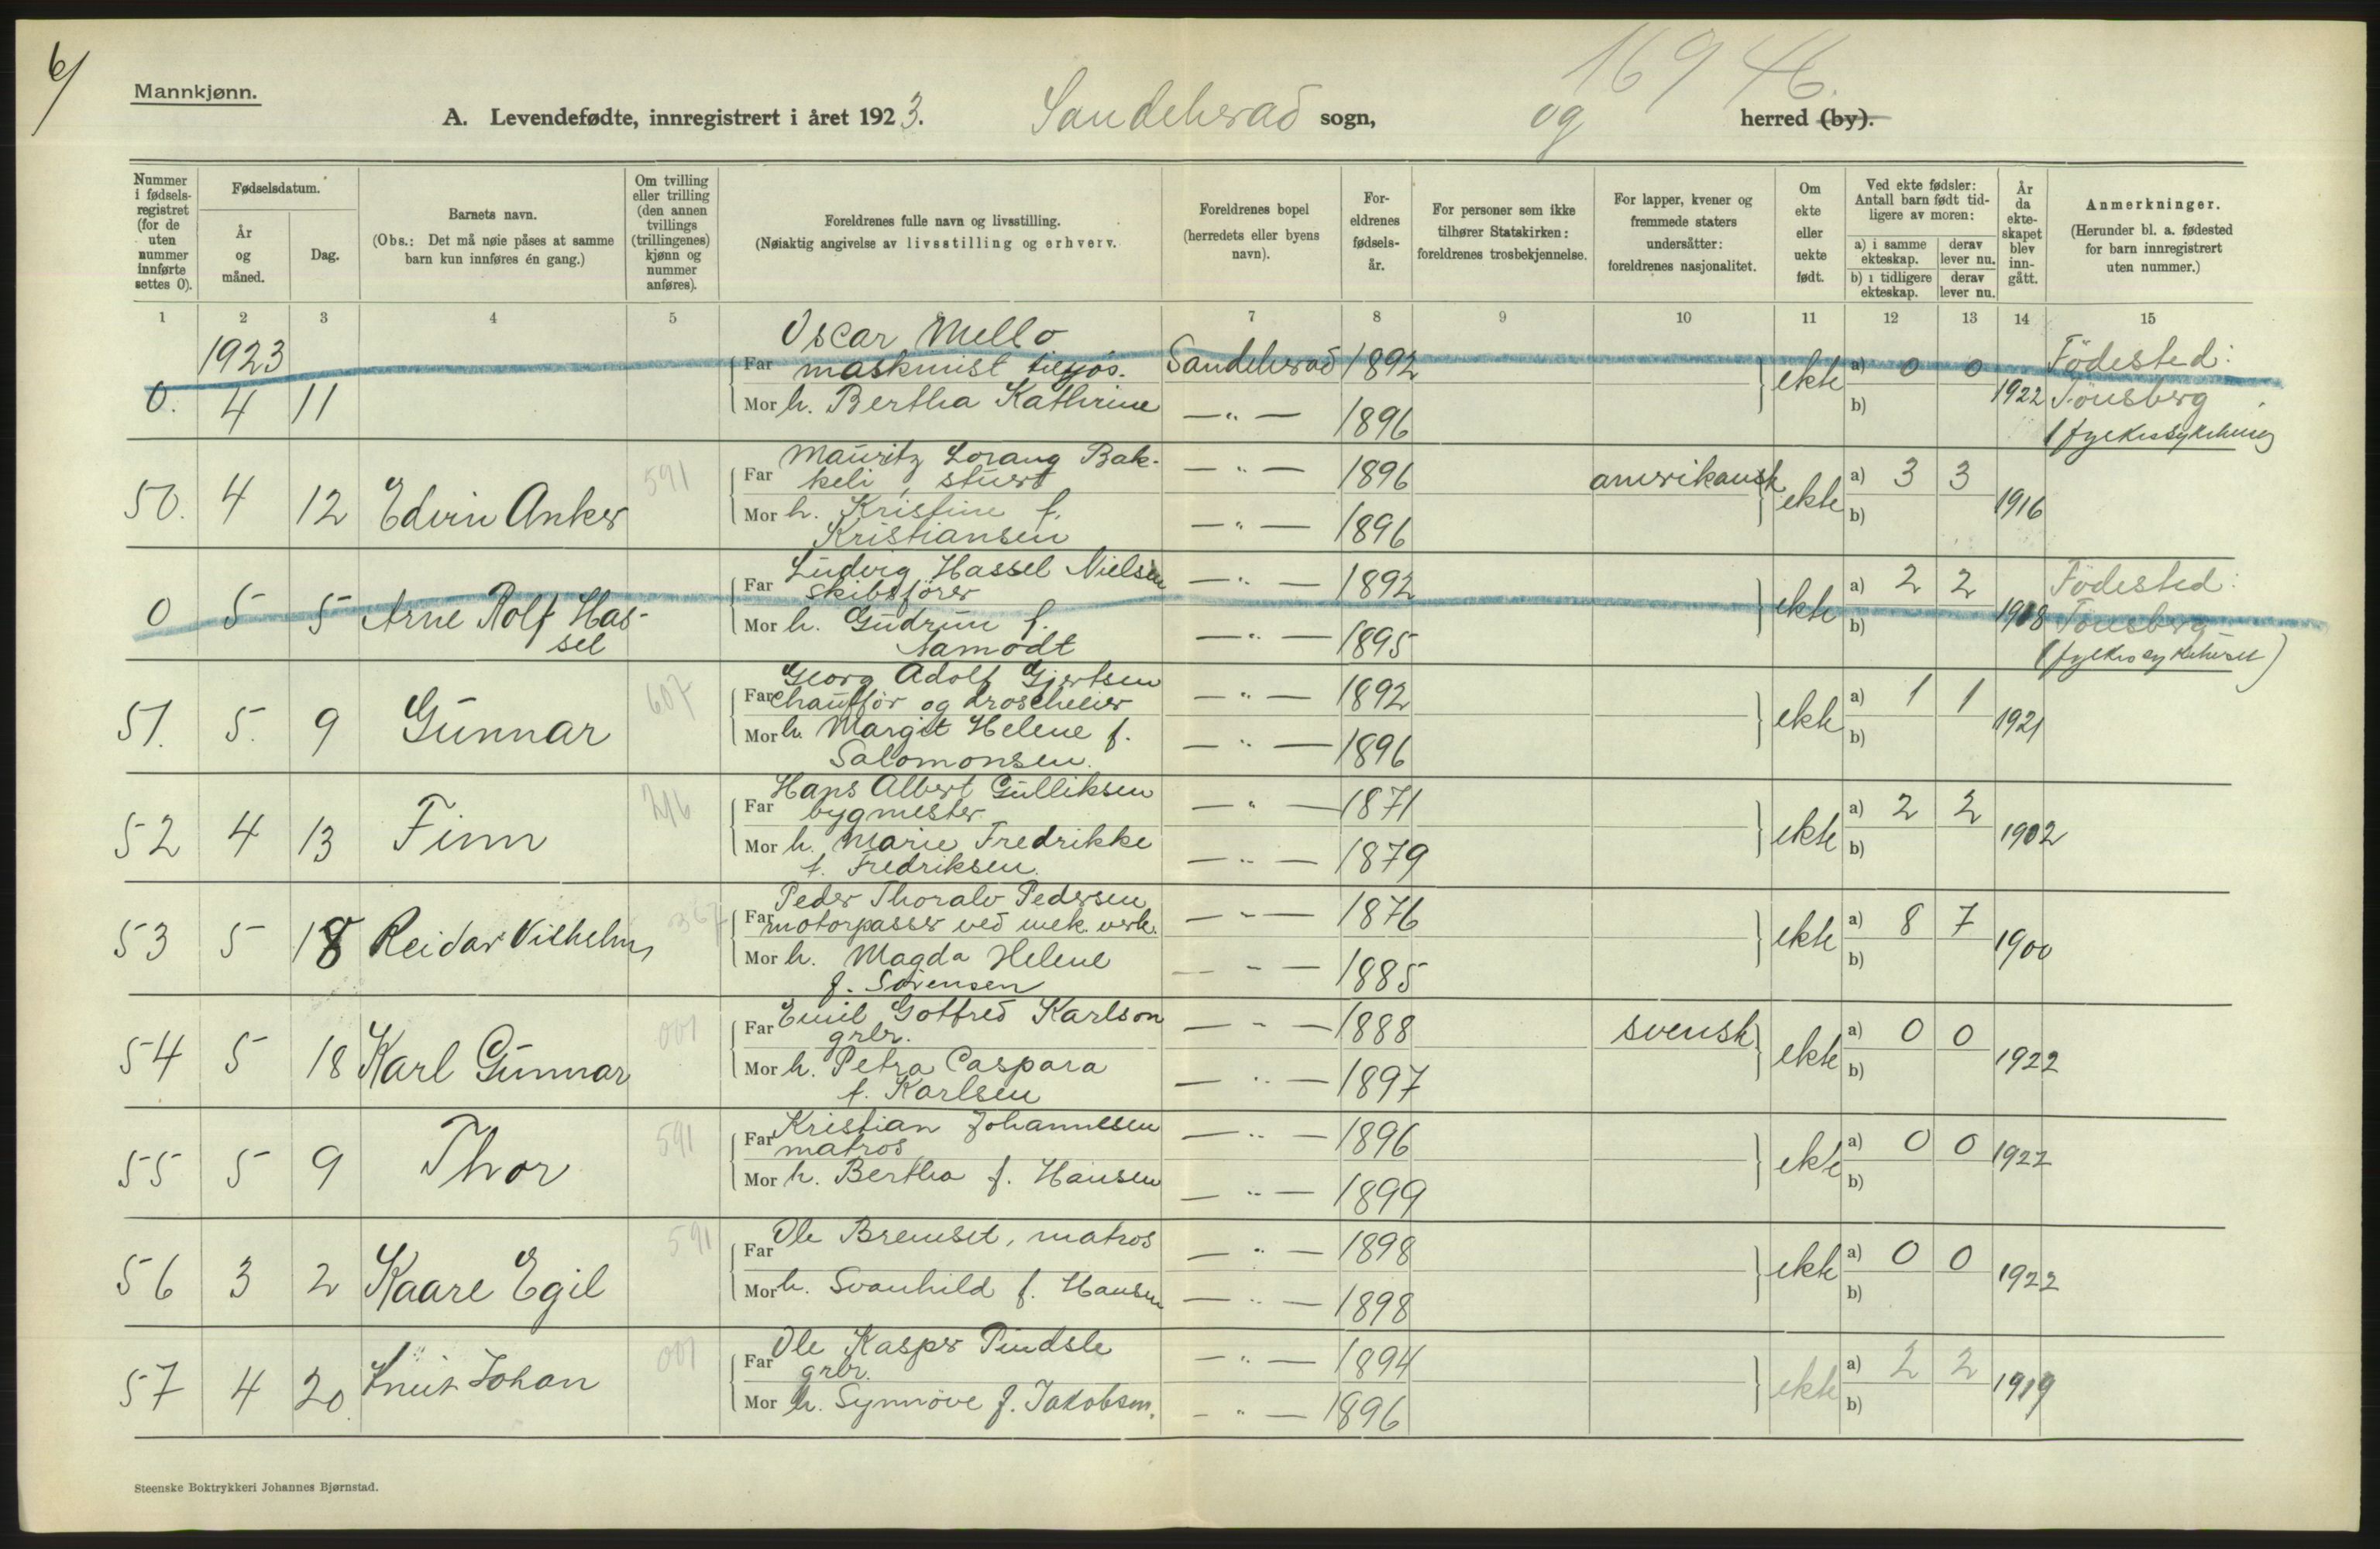 6/
Mannkjønn.
16946.
A. Levendefødte, innregistrert i året 1923. Sandeherad sogn, og herred (by).
Nummer i fødselsregistret (for de uten nummer innførte settes 0).
Fødselsdatum.
År og måned.
Dag.
Barnets navn.
(Obs.: Det må nøie påses at samme barn kun innføres én gang.)
Om tvilling eller trilling (den annen tvillings (trillingenes) kjønn og nummer anføres).
Foreldrenes fulle navn og livsstilling.
(Nøiaktig angivelse av livsstilling og erhverv.
Foreldrenes bopel (herredets eller byens navn).
Foreldrenes fødselsår.
For personer som ikke tilhører Statskirken: foreldrenes trosbekjennelse.
For lapper, kvener og fremmede staters undersåtter: foreldrenes nasjonalitet.
Om ekte eller uekte født.
Ved ekte fødsler: Antall barn født tidligere av moren:
a) i samme ekteskap. derav lever nu.
b) i tidligere ekteskap. derav lever nu.
År da ekteskapet blev inngått.
Anmerkninger.
(Herunder bl. a. fødested for barn innregistrert uten nummer.)
1 2 3 4 5 7 8 9 10 11 12 13 14 15
1923 Oscar Mello
Far maskinist tilsjøs. Sandeherad 1892 ekte a) 0 0 Födested:
0. 4 11 Mor h. Bertha Kathrine —"— 1896 b) 1922 Tønsberg
(fylkessykehus)
Mauritz Lorang Bak-
591 Far keli, stuert —"— 1896 amerikansk ekte a) 3 3
50. 4 12 Edvin Anker Mor h. Kristine f. —"— 1896 b) 1916
Kristiansen
Ludvig Hassel Nielsen
Far skibsfører —"— 1892 ekte a) 2 2 Födested:
0 5 5 Arne Rolf Has- Mor h. Gudrun f. —"— 1895 b) 1918 Tønsberg
sel Aamodt (fylkessykehuset)
Georg Adolf Gjertsen
607 Far chauffør og droscheeier —"— 1892 ekte a) 1 1
51. 5. 9 Gunnar Mor h. Margit Helene f. —"— 1896 b) 1921
Salomonsen.
Hans Albert Gulliksen
216 Far bygmester —"— 1871 ekte a) 2 2
52 4 13 Finn Mor h. Marie Fredrikke —"— 1879 b) 1902
f. Fredriksen.
Peder Thoralv Pedersen
367 Far motorpasser ved mek. verk. —"— 1876 ekte a) 8 7
53 5 18 Reidar Vilhelm Mor h. Magda Helene —"— 1885 b) 1900
f. Sörensen
Emil Gotfred Karlson
001 Far grbr. —"— 1888 svensk ekte a) 0 0
54 5 18 Karl Gunnar Mor h. Petra Caspara —"— 1897 b) 1922
f. Karlsen
Kristian Johannesen
591 Far matros —"— 1896 ekte a) 0 0
55 5 9 Thor Mor h. Bertha f. Hansen —"— 1899 b) 1922
591 Ole Bremset, matros
Far —"— 1898 ekte a) 0 0
56 3 2 Kaare Egil Mor h. Svanhild f. Hansen —"— 1898 b) 1922
Ole Kasper Pindsle
001 Far grbr. —"— 1894 ekte a) 2 2
57 4 20. Knut Johan Mor h. Synnöve f. Jakobsen. —"— 1896 b) 1919
Steenske Boktrykkeri Johannes Bjørnstad.